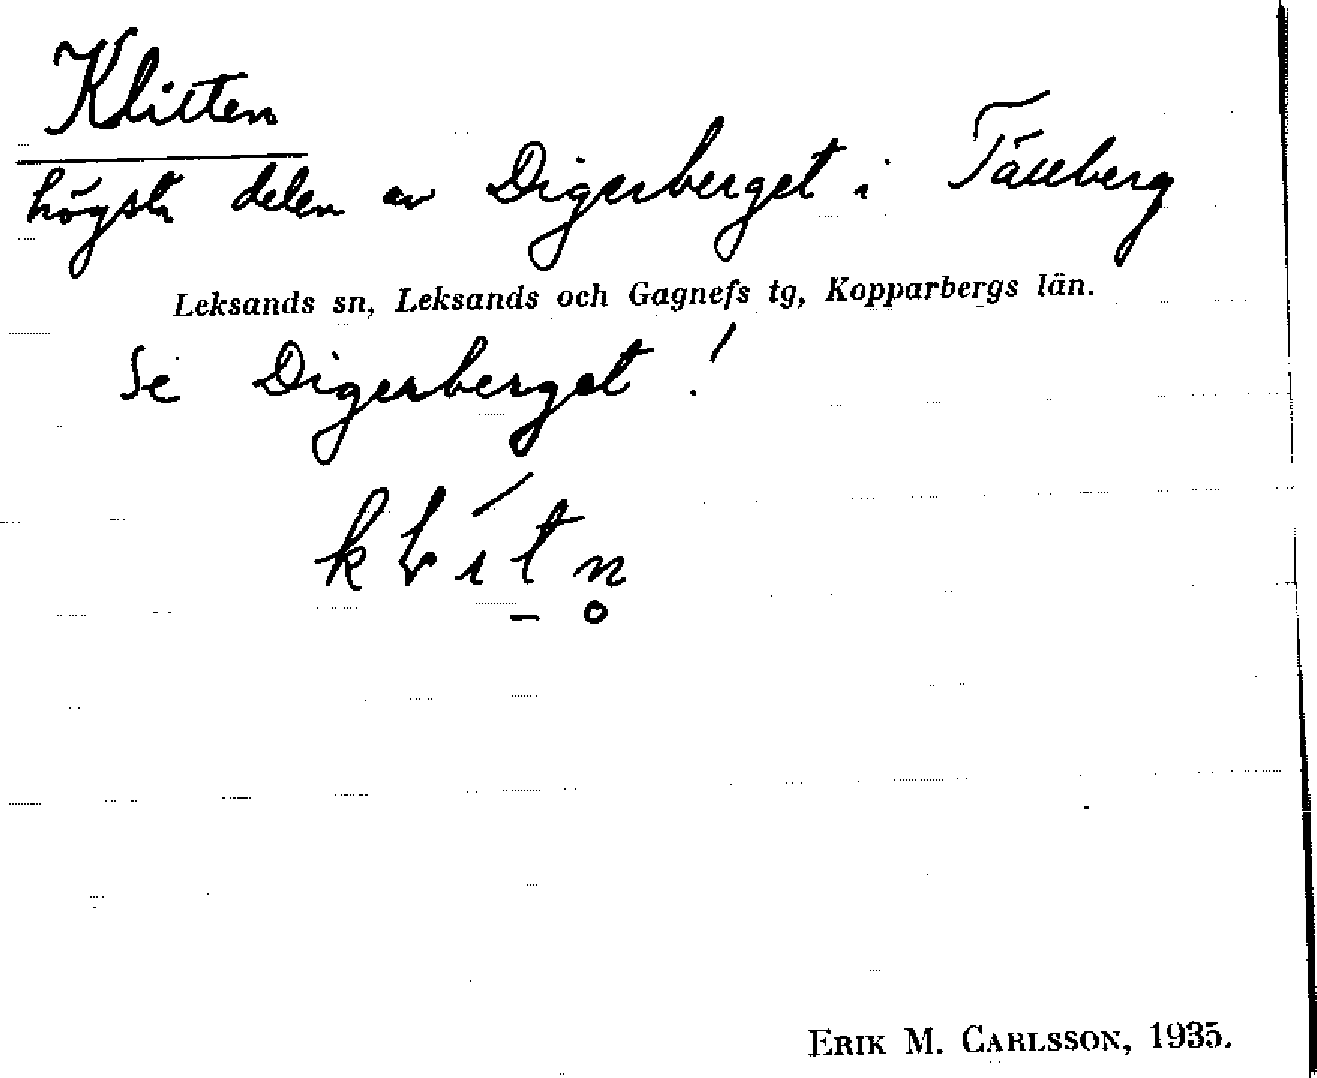 Klitten
högsta delen av Digerberget i Tällberg
Leksands sn, Leksands och Gagnefs tg, Kopparbergs län.
Se Digerberget!
ERIK M. CARLSSON, 1935.